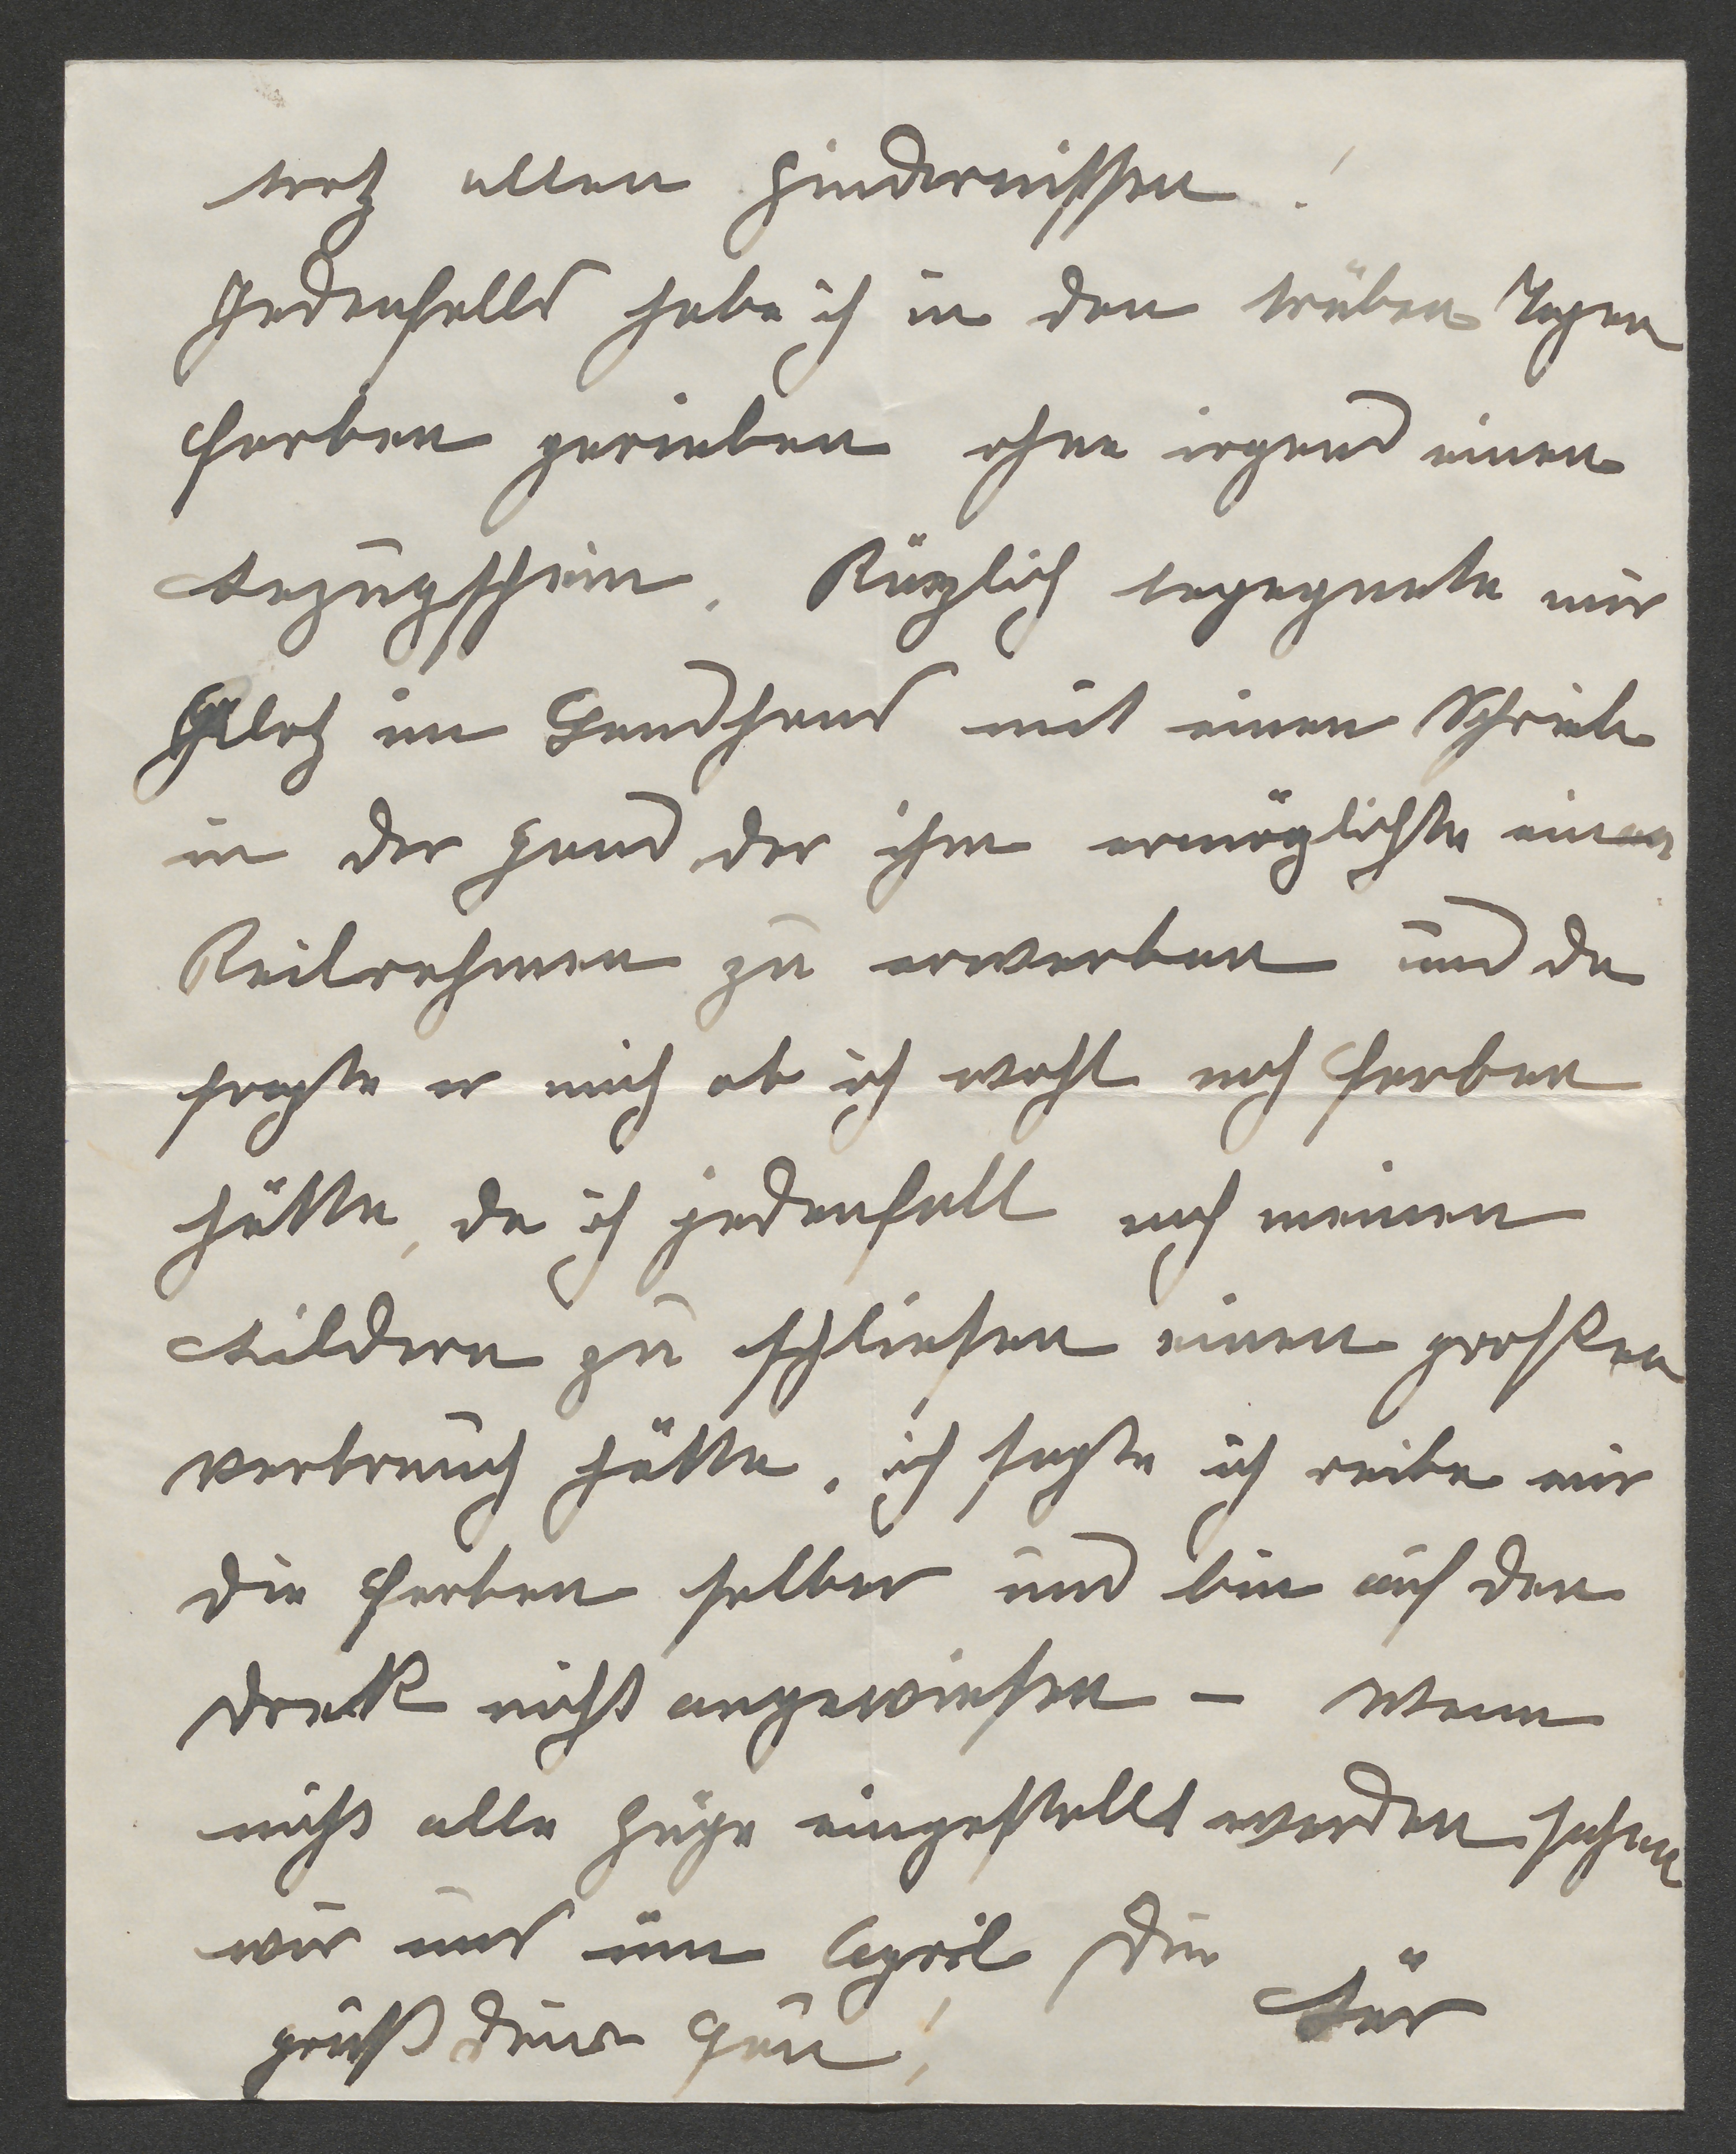 trotz allen Hindernissen!
Jedenfalls habe ich in den trüben Tagen
Farben gerieben ohne irgend einen
Bezugschein. Kürzlich begegnete mir
im Landhaus mit einen Schrieb
in der Hand der ihm ermöglichte einen
Keilrahmen zu erwerben und da
fragte er mich ob ich wohl noch Farben
hätte, da ich jedenfall nach meinen
Bildern zu schliesen einen großen
verbrauch hätte. ich sagte ich reibe mir
die Farben selber und bin auf den
Dreck nicht angewiesen – Wenn
nicht alle Züge eingestellt werden sehen
wir uns im April Dein
grüß Deine Frau! Bär